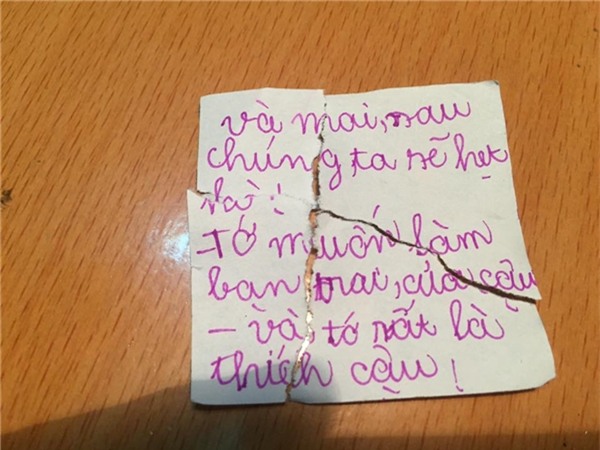 và mai, sau
chúng ta sẽ hẹt
hạ!
- Tớ muốn làm
bạn trai, của cậu
- và tớ rất là
thích cậu!